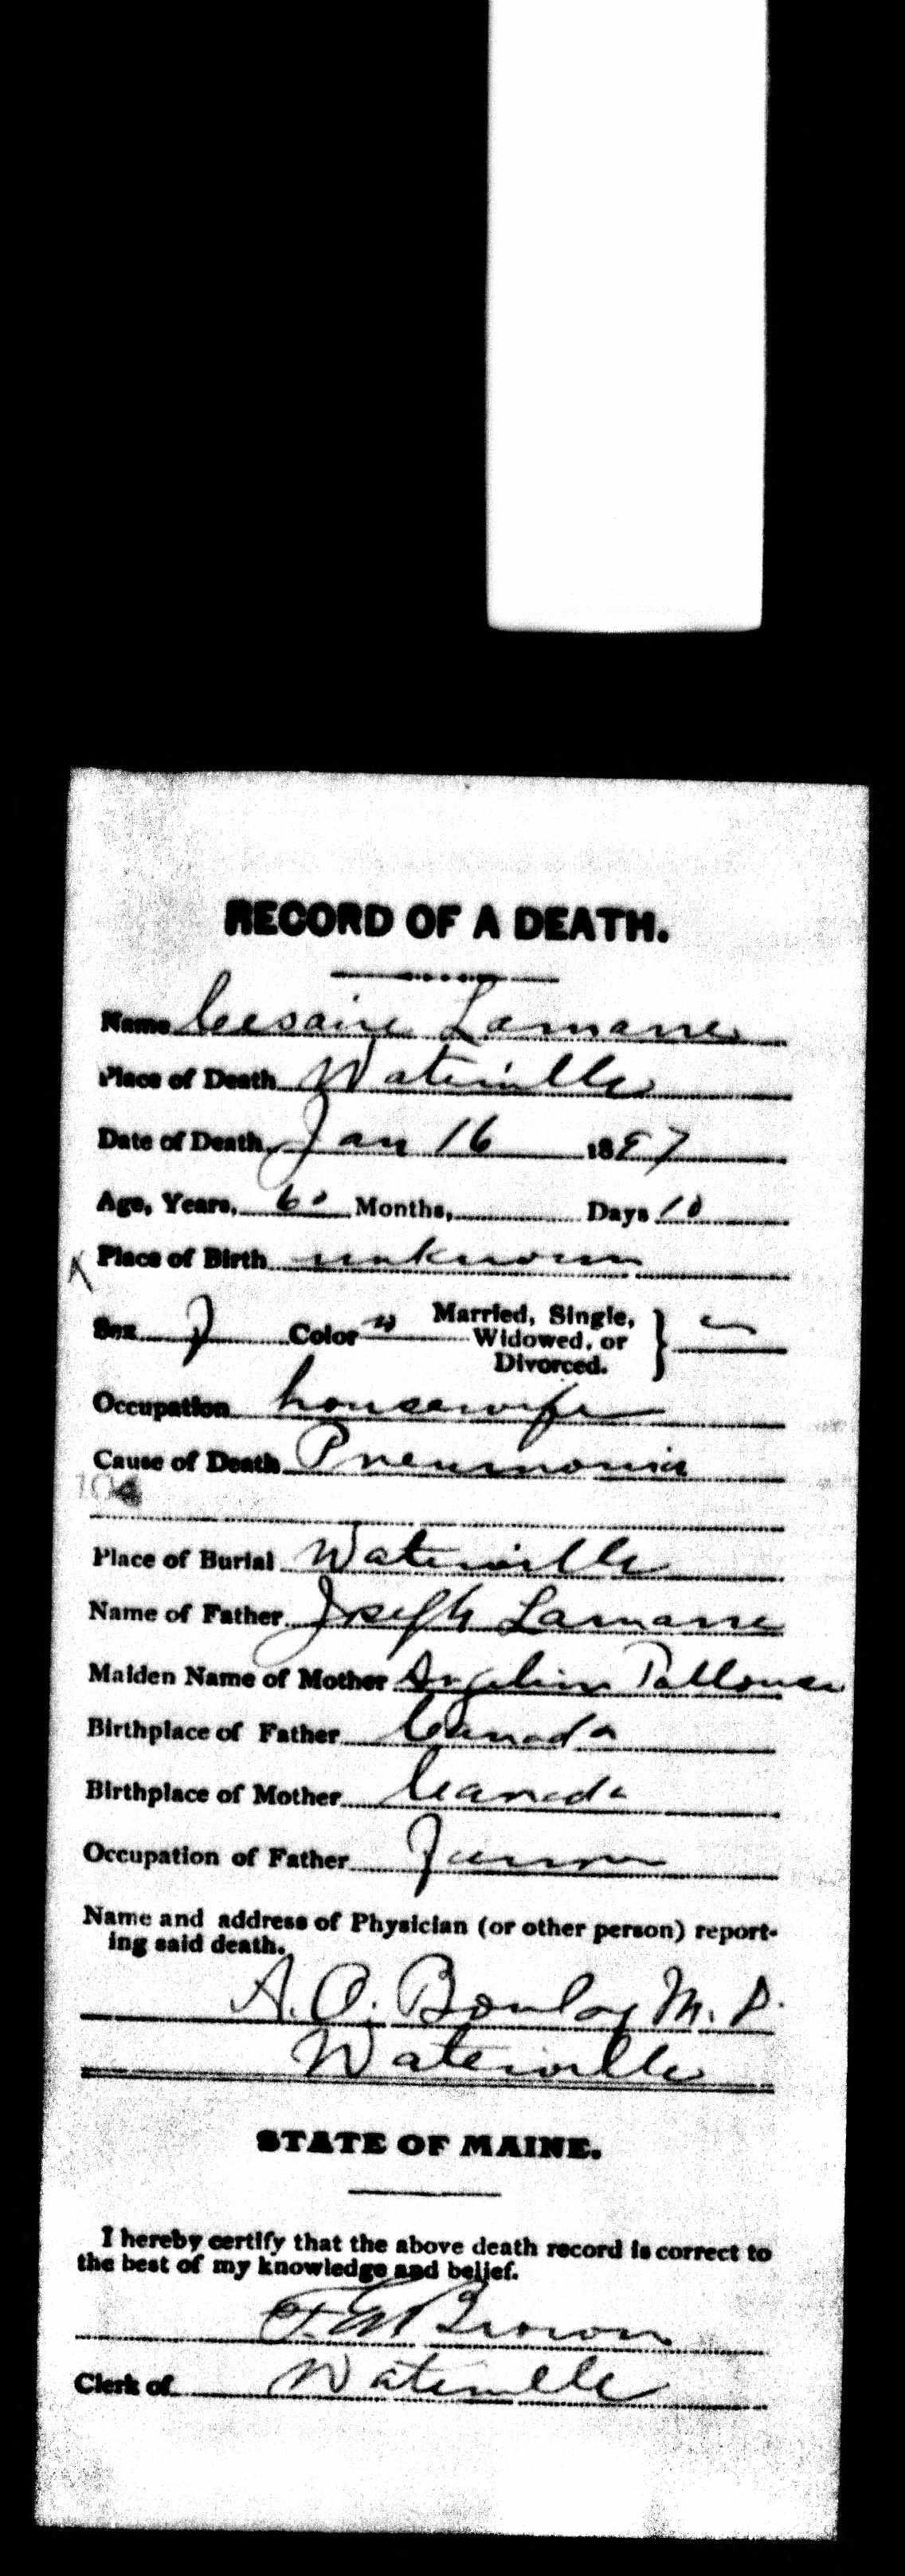 RECORD OF A DEATH.
Name Cesaire Lamarre
Place of Death Waterville
Date of Death, Jan 16 1897
Age, Years, 60 Months, Days 10
Place of Birth unknown
Sex F Color w Married, Single,
Widowed, or
Divorced. }
Occupation housewife
Cause of Death Pneumonia
Place of Burial Waterville
Name of Father Joseph Lamarre
Maiden Name of Mother Angelina
Birthplace of Father Canada
Birthplace of Mother Canada
Occupation of Father Farmer
Name and address of Physician (or other person) report-
ing said death.
A. O. Boulay M. D.
Waterville
STATE OF MAINE.
I hereby certify that the above death record is correct to
the best of my knowledge and belief.
Brown
Clerk of Waterville